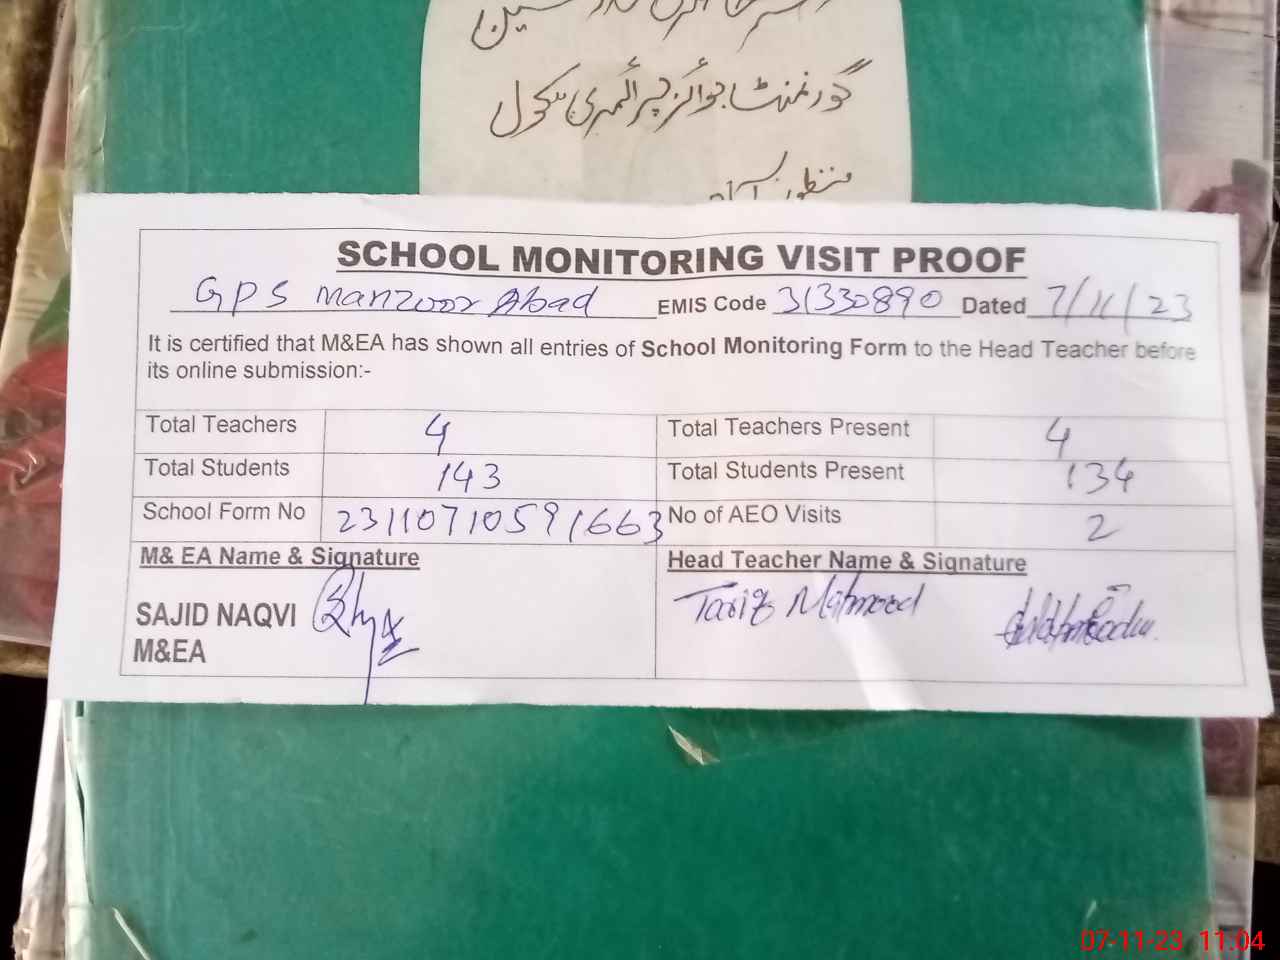 گورنمنٹ بوائز پرائمری سکول
منظور آباد
SCHOOL MONITORING VISIT PROOF
GPS Manzoor Abad EMIS Code 31330890 Dated 7/11/23
It is certified that M&EA has shown all entries of School Monitoring Form to the Head Teacher before
its online submission:-
Total Teachers 4 Total Teachers Present 4
Total Students 143 Total Students Present 134
School Form No 23110710591663 No of AEO Visits 2
M& EA Name & Signature Head Teacher Name & Signature
SAJID NAQVI Tariq Mahmood
M&EA
07-11-23 11:04